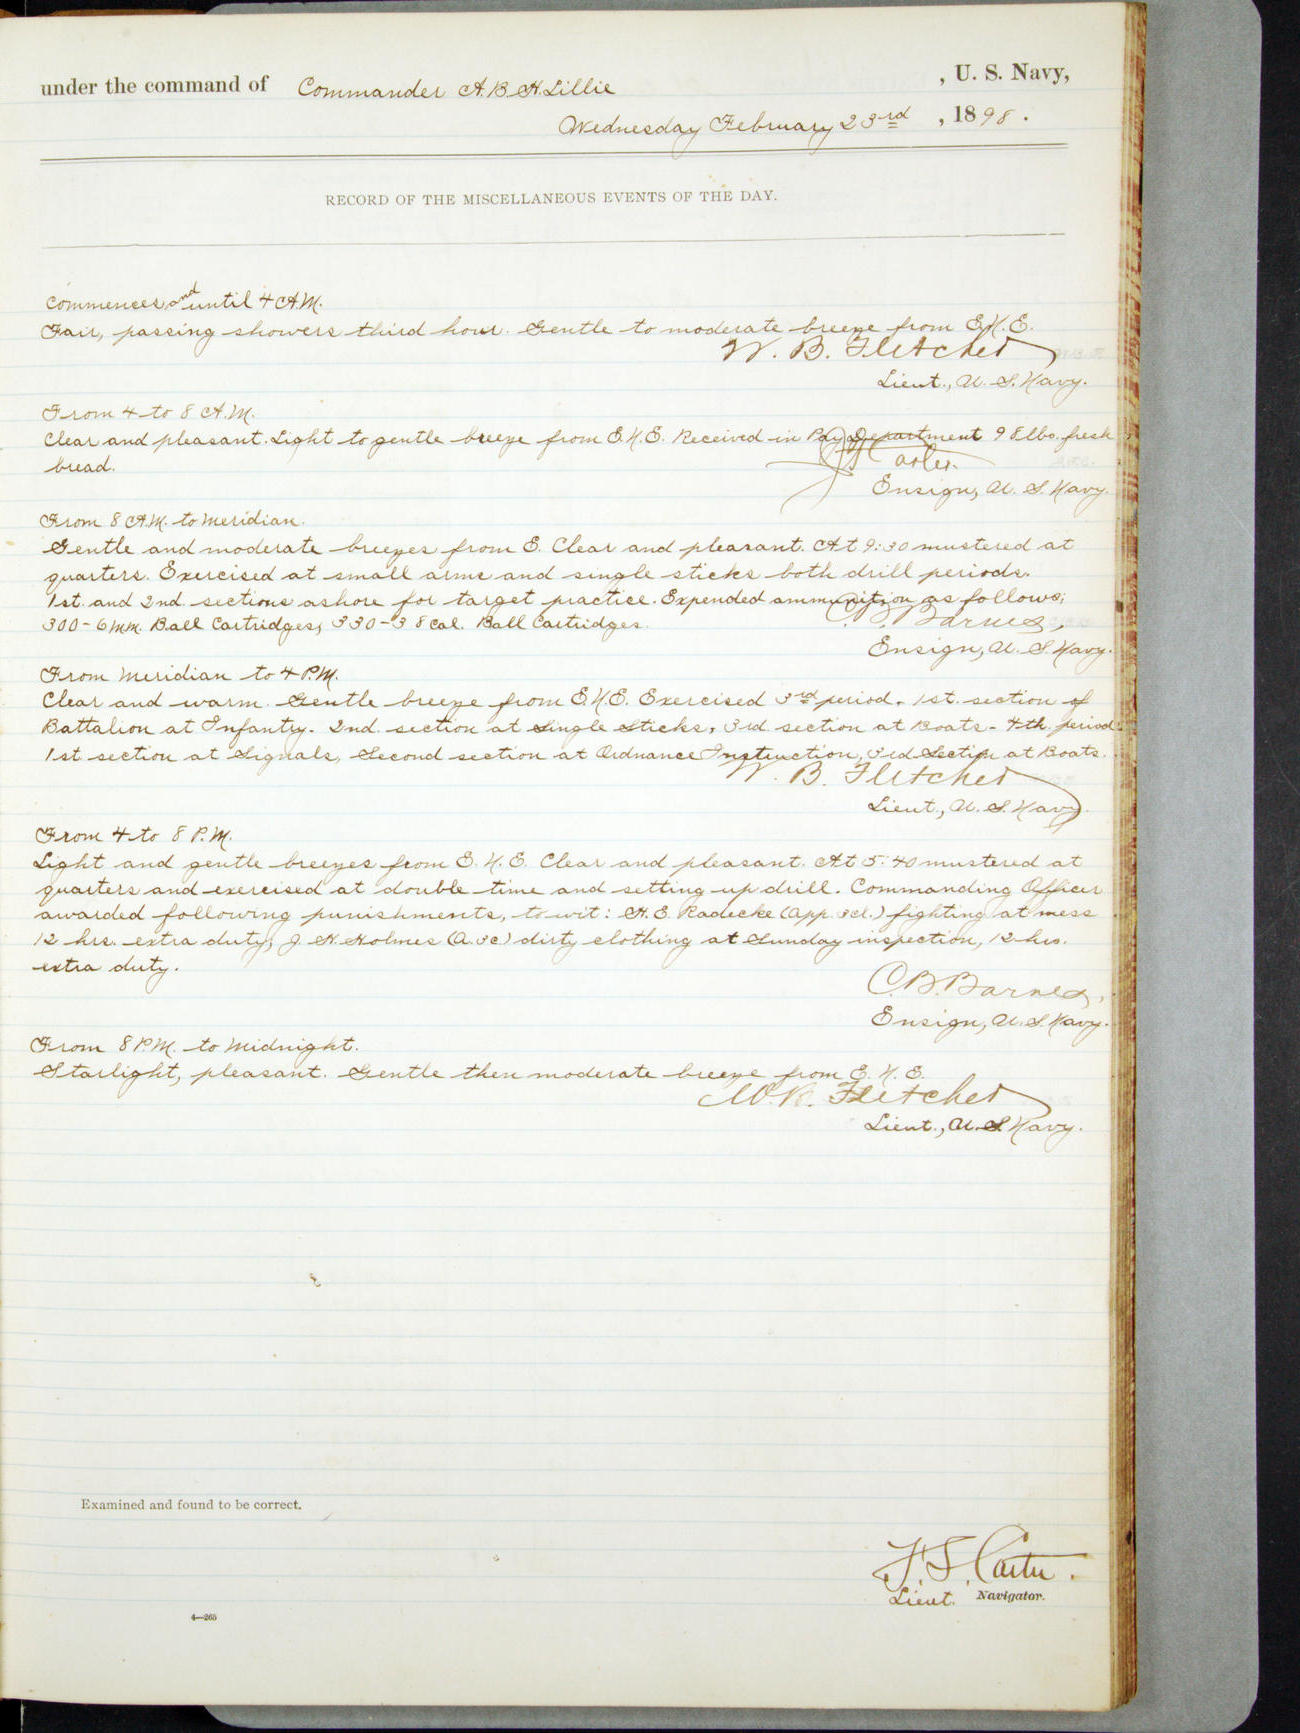 under the command of Commander A. B. H. Lillie , U. S. Navy,
Wednesday February 23rd , 1898 .
RECORD OF THE MISCELLANEOUS EVENTS OF THE DAY.
Commences and until 4 A.M.
Fair, passing showers third hour. Gentle to moderate breeze from E.N.E.
W. B. Fletcher
Lieut., U. S. Navy.
From 4 to 8 A.M.
Clear and pleasant. Light to gentle breeze from E.N.E. Received in Pay Department 98 lbs. fresh
bread.
Ensign, U. S. Navy.
From 8 A.M. to Meridian.
Gentle and moderate breezes from E. Clear and pleasant. At 9:30 mustered at
quarters. Exercised at small arms and single sticks both drill periods.
1st. and 2nd. sections ashore for target practice. Expended ammunition as follows;
300-6mm. Ball Cartridges, 330-38 cal. Ball Cartridges.
C. B. Barnes,
Ensign, U. S. Navy.
From Meridian to 4 P.M.
Clear and warm. Gentle breeze from E.N.E. Exercised 3rd period. 1st. section of
Battalion at Infantry. 2nd. section at Single Sticks, 3rd section at Boats - 4th. period:
1st section at Signals, Second section at Ordnance Instruction, 3rd Section at Boats.
W. B. Fletcher
Lieut., U. S. Navy.
From 4 to 8 P.M.
Light and gentle breezes from E. N. E. Clear and pleasant. At 5:40 mustered at
quarters and exercised at double time and setting up drill. Commanding Officer
awarded following punishments, to wit: H. E. Radecke (App. 3cl.) fighting at mess
12 hrs. extra duty; J. H. Holmes (A. 3c) dirty clothing at Sunday inspection, 12 hrs.
extra duty.
C. B. Barnes,
Ensign, U. S. Navy.
From 8 P.M. to Midnight.
Starlight, pleasant. Gentle then moderate breeze from E. N. E.
W. B. Fletcher
Lieut., U. S. Navy.
Examined and found to be correct.
F. S. Carter.
Lieut. Navigator.
4—265